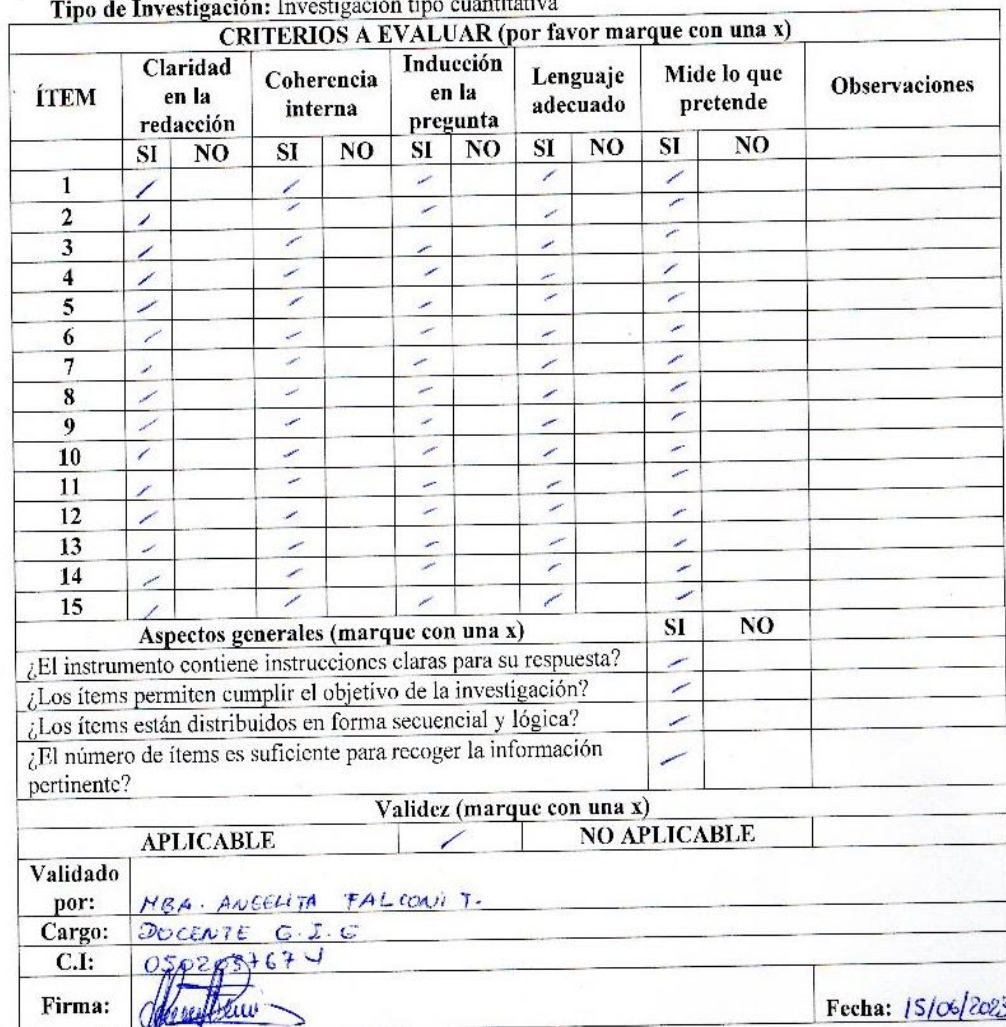 Tipo de Investigación: Investigación tipo cuantitativa
CRITERIOS A EVALUAR (por favor marque con una x)
ÍTEM Claridad en la redacción Coherencia interna Inducción en la pregunta Lenguaje adecuado Mide lo que pretende Observaciones
SI NO SI NO SI NO SI NO SI NO
1
2
3
4
5
6
7
8
9
10
11
12
13
14
15
Aspectos generales (marque con una x) SI NO
¿El instrumento contiene instrucciones claras para su respuesta?
¿Los ítems permiten cumplir el objetivo de la investigación?
¿Los ítems están distribuidos en forma secuencial y lógica?
¿El número de ítems es suficiente para recoger la información
pertinente?
Validez (marque con una x)
APLICABLE NO APLICABLE
Validado por: MBA. ANGELITA FALCONI T.
Cargo: DOCENTE G.I.G
C.I:
Firma: Fecha: 15/06/2023